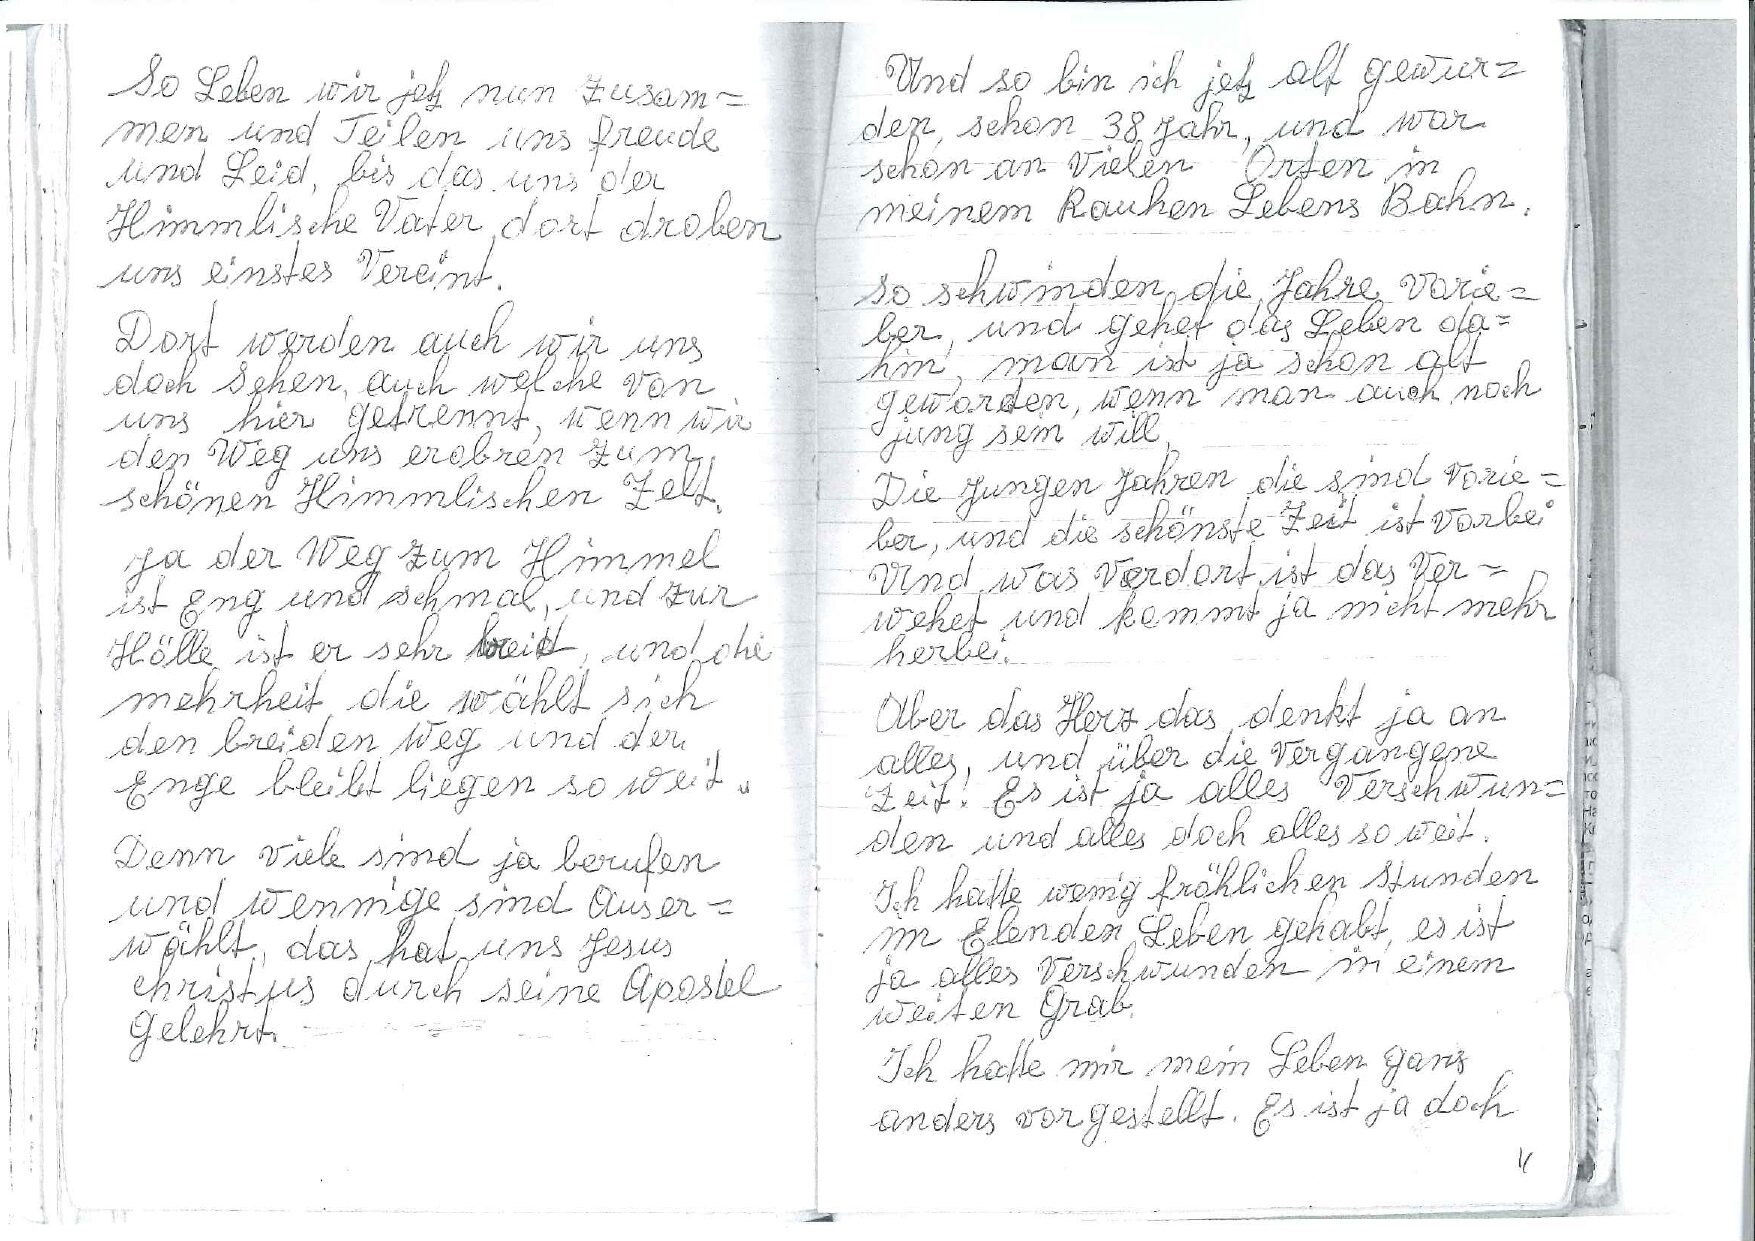 So Leben wir jetz nun zusam=
men und Teilen uns freude
und Leid, bis das uns der
Himmlische Vater dort droben
uns einstes Vereint.
Dort werden auch wir uns
doch Sehen, auch welche von
uns hier getrennt, wenn wir
den Weg uns erobren zum
schönen Himmlischen Zelt.
Ja der Weg zum Himmel
ist Eng und schmal, und zur
Hölle ist er sehr breit, und die
mehrheit die wählt sich
den breiden Weg und der
Enge bleibt liegen so weit.
Denn viele sind ja berufen
und wennige sind Auser=
wählt, das hat uns Jesus
christus durch seine Apostel
Gelehrt.
Und so bin ich jetz alt gewur=
den, schon 38 Jahr, und war
schon an Vielen Orten in
meinem Rauhen Lebens Bahn.
So schwinden die Jahre Vorie=
ber, und gehet das Leben da=
hin, man ist ja schon alt
geworden, wenn man auch noch
jung sein will.
Die Jungen Jahren die sind Vorie=
ber, und die schönste Zeit ist Vorbei
Und was Verdort ist das Ver=
wehet und kommt ja nicht mehr
herbei.
Aber das Herz das denkt ja an
alles, und über die Vergangene
Zeit! Es ist ja alles Verschwun=
den und alles doch alles so weit.
Ich hatte wenig fröhlichen stunden
im Elenden Leben gehabt, es ist
ja alles Verschwunden in einem
weiten Grab.
Ich hatte mir mein Leben gans
anders vorgestellt. Es ist ja doch